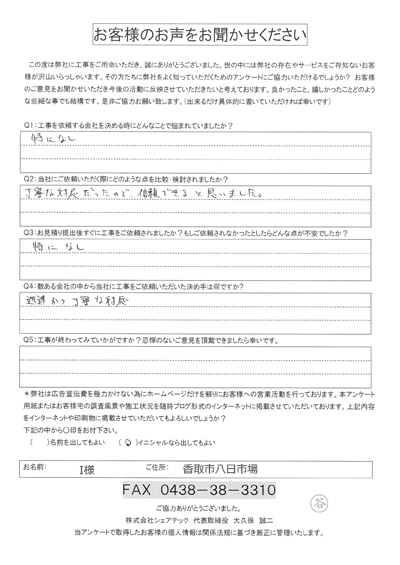 お客様のお声をお聞かせください
この度は弊社に工事をご用命いただき、誠にありがとうございました。世の中には弊社の存在やサービスをご存知ないお客
様が沢山いらっしゃいます。その方たちに弊社をよく知っていただくためのアンケートにご協力いただけるでしょうか? お客様
のご意見をお聞かせいただき今後の活動に反映させていただきたいと考えております。良かったこと、嬉しかったことどのよう
な些細な事でも結構です。是非ご協力お願い致します。(出来るだけ具体的に書いていただければ幸いです)
Q1:工事を依頼する会社を決める時にどんなことで悩まれていましたか?
特になし
Q2:当社にご依頼いただく際にどのような点を比較・検討されましたか?
丁寧な対応だったので、信頼できると思いました。
Q3:お見積り提出後すぐに工事をご依頼されましたか?もしご依頼されなかったとしたらどんな点が不安でしたか?
特になし
Q4:数ある会社の中から当社に工事をご依頼いただいた決め手は何ですか?
迅速かつ丁寧な対応
Q5:工事が終わってみていかがですか?忌憚のないご意見を頂戴できましたら幸いです。
*弊社は広告宣伝費を極力かけない為にホームページだけを頼りにお客様への営業活動を行っております。本アンケート
用紙またはお客様宅の調査風景や施工状況を随時ブログ形式のインターネットに掲載させていただいております。上記内容
をインターネットや印刷物に掲載させていただいてもよろしいでしょうか?
下記の中から〇印をお付下さい。
( )名前を出してもよい (〇)イニシャルなら出してもよい
お名前: I様 ご住所: 香取市八日市場
FAX 0438-38-3310
ご協力ありがとうございました。
谷
株式会社シェアテック 代表取締役 大久保 誠二
当アンケートで取得したお客様の個人情報は関係法規に基づき厳正に管理いたします。